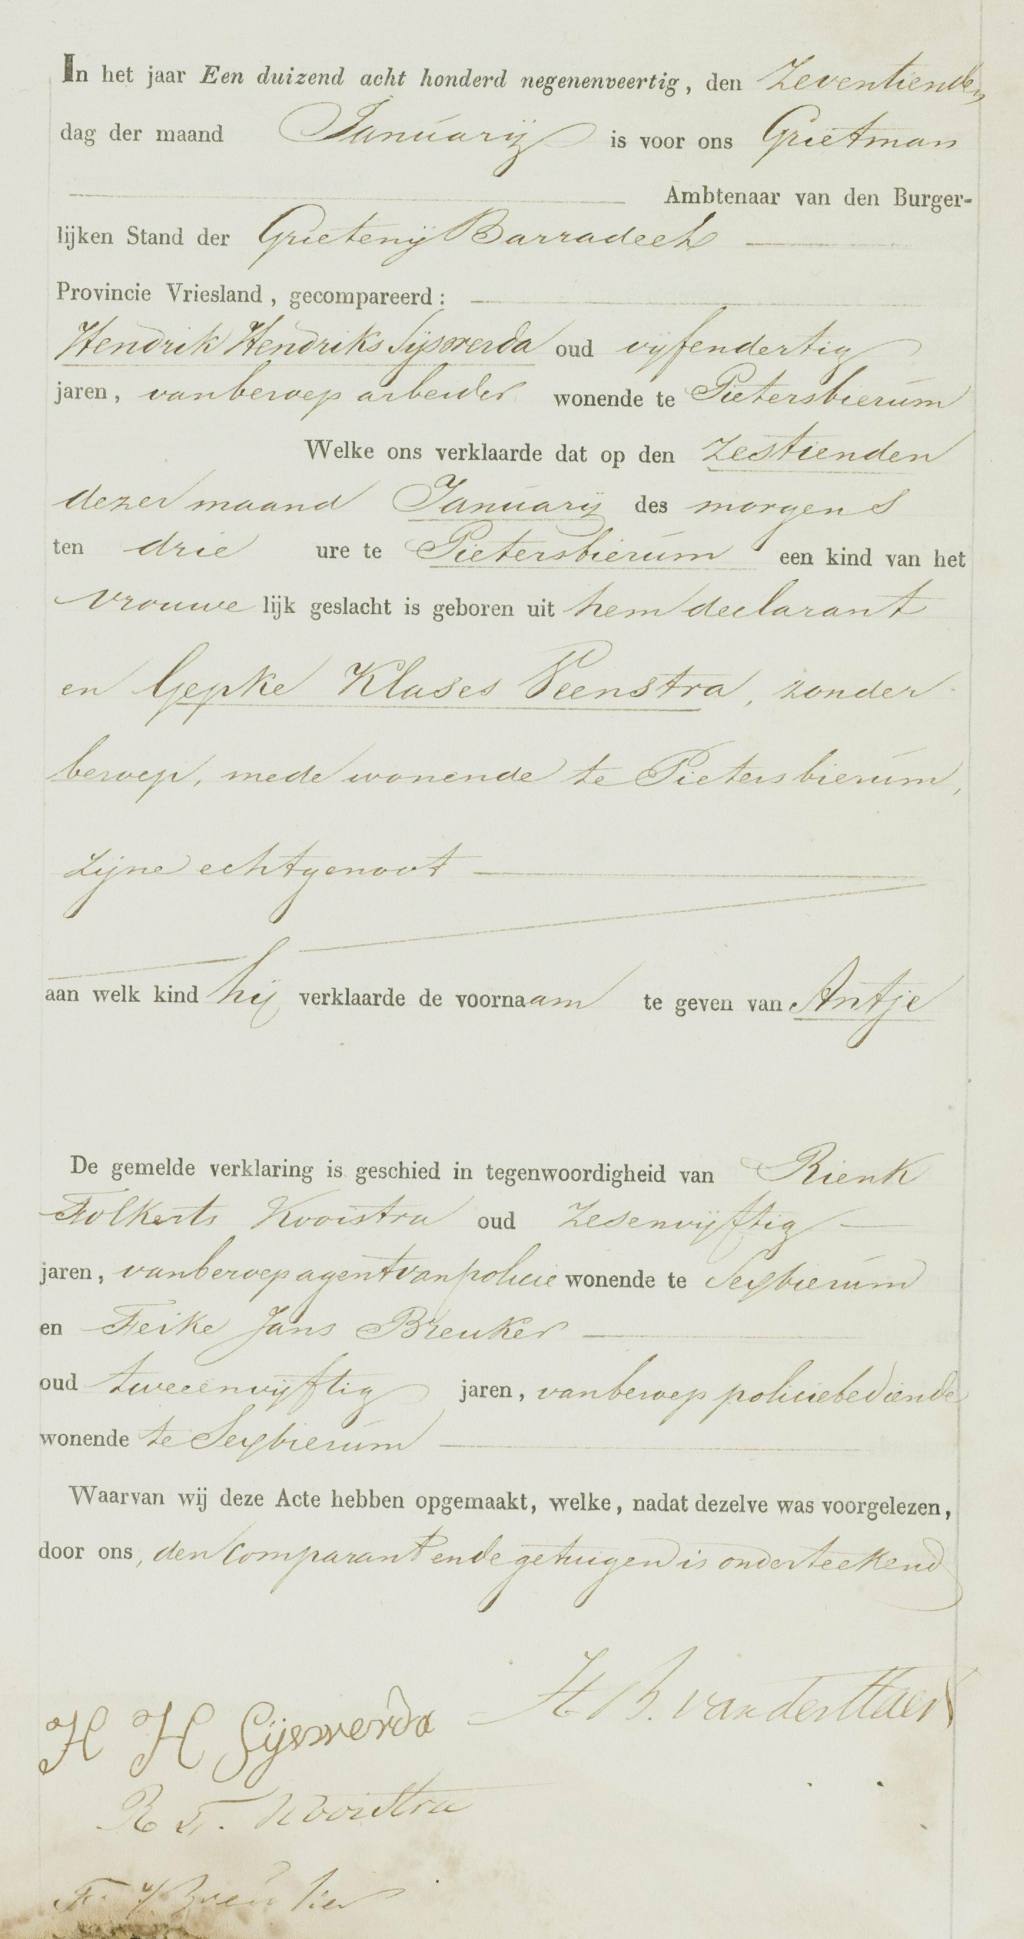 In het jaar Een duizend acht honderd negenenveertig, den Zeventienden
dag der maand Januarij is voor ons Grietman
Ambtenaar van den Burger-
lijken Stand der Grietenij Barradeel
Provincie Vriesland, gecompareerd:
Hendrik Hendriks Sijswerda oud vijfendertig
jaren, van beroep arbeider wonende te Pietersbierum
Welke ons verklaarde dat op den zestienden
dezer maand Januarij des morgens
ten drie ure te Pietersbierum een kind van het
vrouwelijk geslacht is geboren uit hem declarant
en Gepke Klases Veenstra, zonder
beroep, mede wonende te Pietersbierum,
zijne echtgenoot
aan welk kind hij verklaarde de voornaam te geven van Antje
De gemelde verklaring is geschied in tegenwoordigheid van Rienk
Folkerts Kooistra oud Zesenvijftig
jaren, van beroep agent van policie wonende te Sexbierum
en Feike Jans Breuker
oud tweeenvijftig jaren, van beroep policiebediende
wonende te Sexbierum
Waarvan wij deze Acte hebben opgemaakt, welke, nadat dezelve was voorgelezen,
door ons, den Comparant en de getuigen is onderteekend
H B. van der Haer
H H Sijswerda
R F. Kooistra
F J Breuker